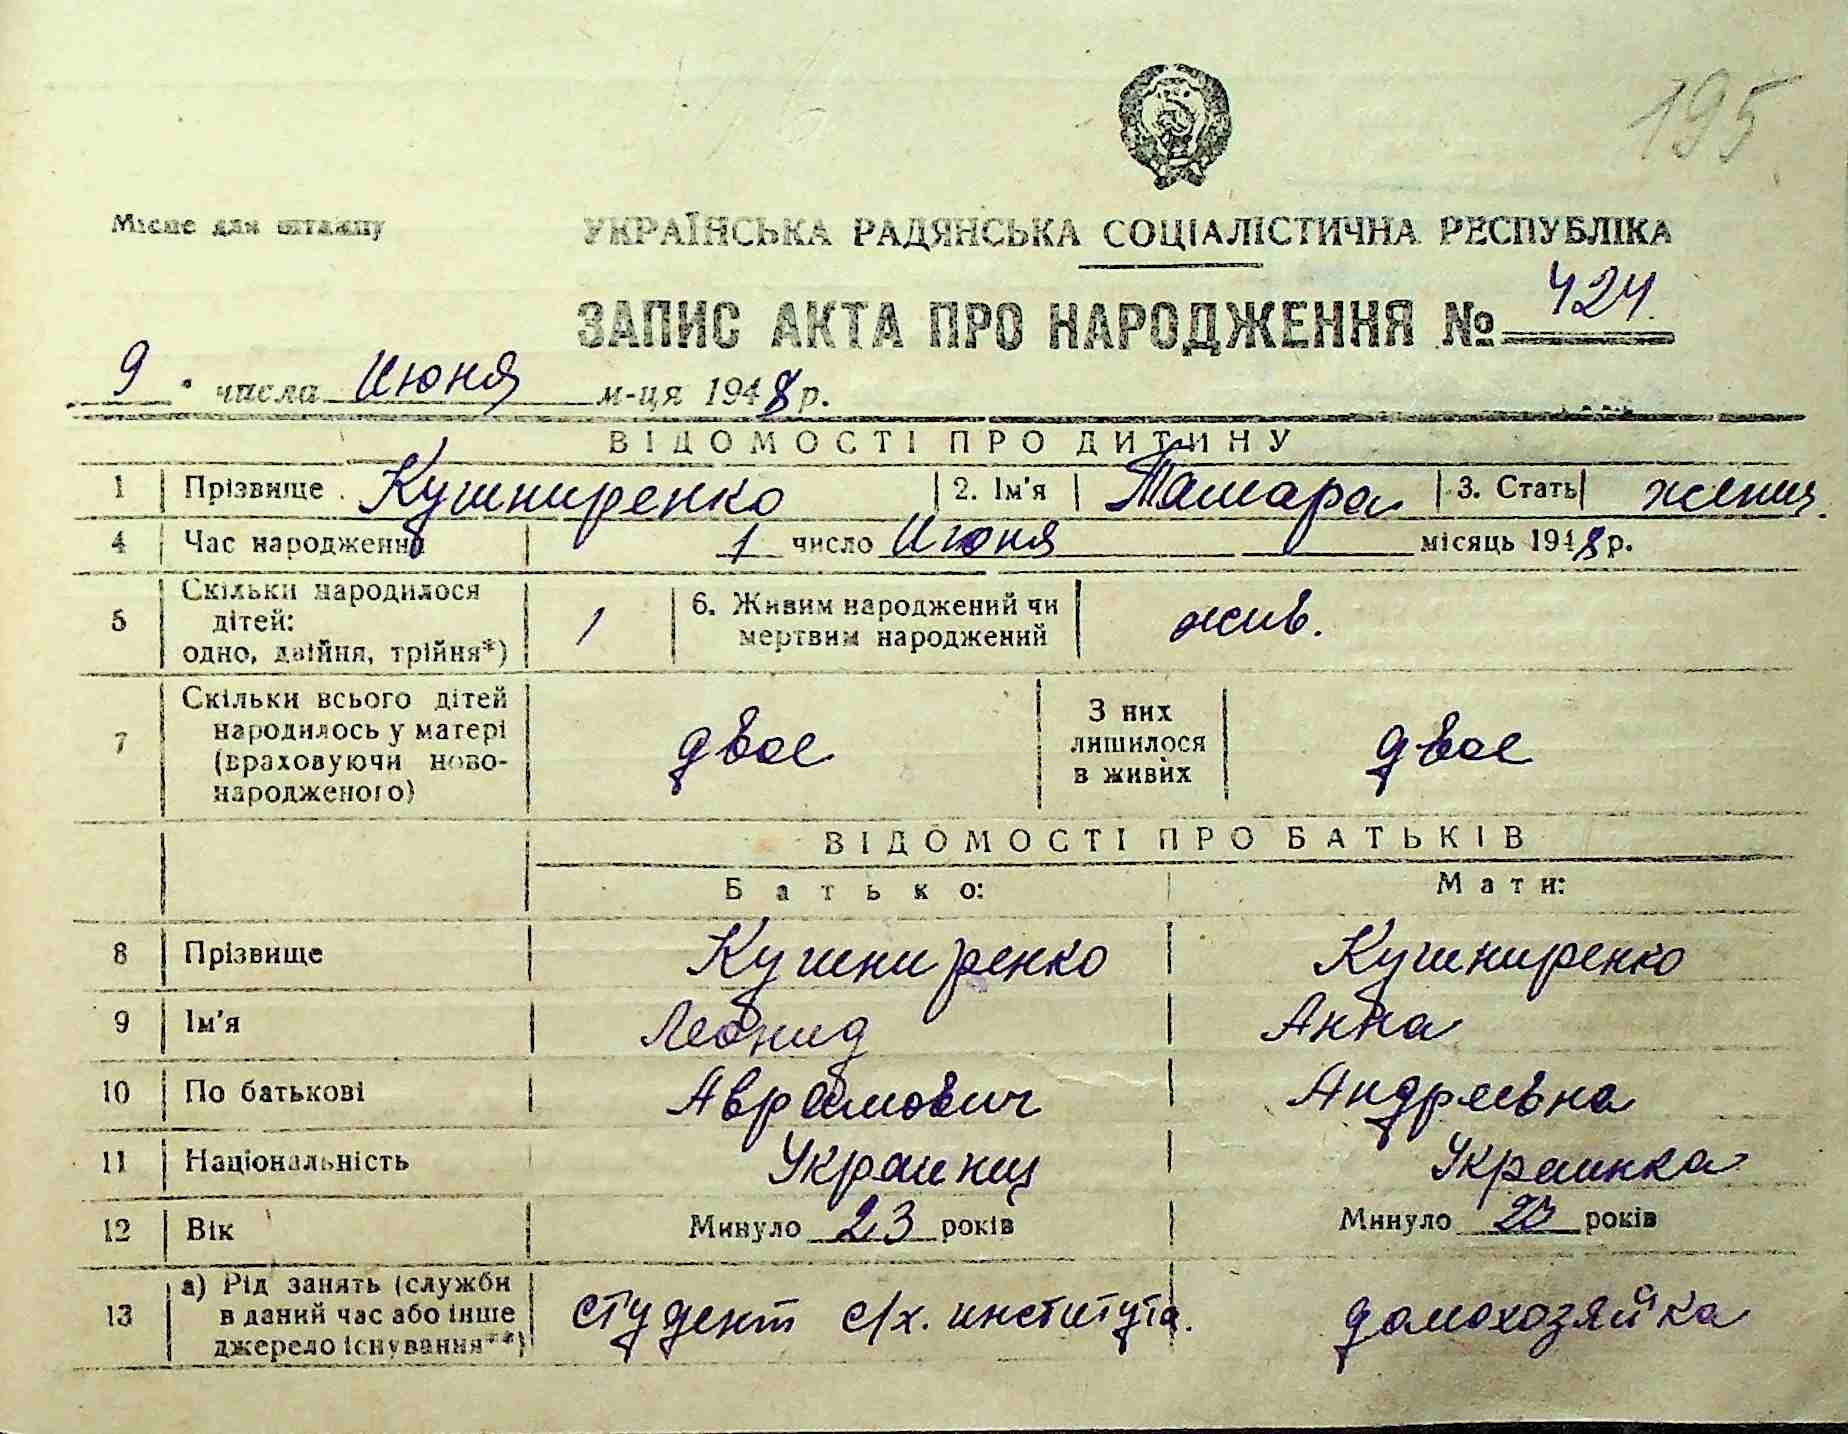 195
Місце для штампу
УКРАЇНСЬКА РАДЯНСЬКА СОЦІАЛІСТИЧНА РЕСПУБЛІКА
ЗАПИС АКТА ПРО НАРОДЖЕННЯ № 424.
9 числа Июня м-ця 1948 р.
ВІДОМОСТІ ПРО ДИТИНУ
1 Прізвище Кушниренко 2. Ім'я Тамара 3. Стать женщ.
4 Час народження 1 число Июня місяць 1948 р.
5 Скільки народилося дітей: одно, двійня, трійня*) 1 6. Живим народжений чи мертвим народжений жив.
7 Скільки всього дітей народилось у матері (враховуючи ново-народженого) двое З них лишилося в живих двое
ВІДОМОСТІ ПРО БАТЬКІВ
Батько: Мати:
8 Прізвище Кушниренко Кушниренко
9 Ім'я Леонид Анна
10 По батькові Аврамович Андреевна
11 Національність Украинец Украинка
12 Вік Минуло 23 років Минуло років
13 а) Рід занять (служби в даний час або інше джерело існування**) студент с/х. института. домохозяйка